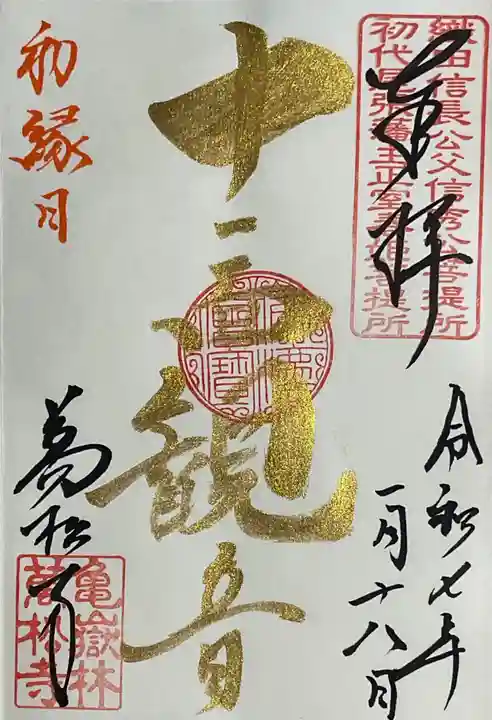 奉拝
織田信長公父信秀公菩提所
初代尾張藩主正室春姫菩提所
令和七年
一月十八日
十一面観音
初縁日
萬松寺
亀嶽林
萬松寺